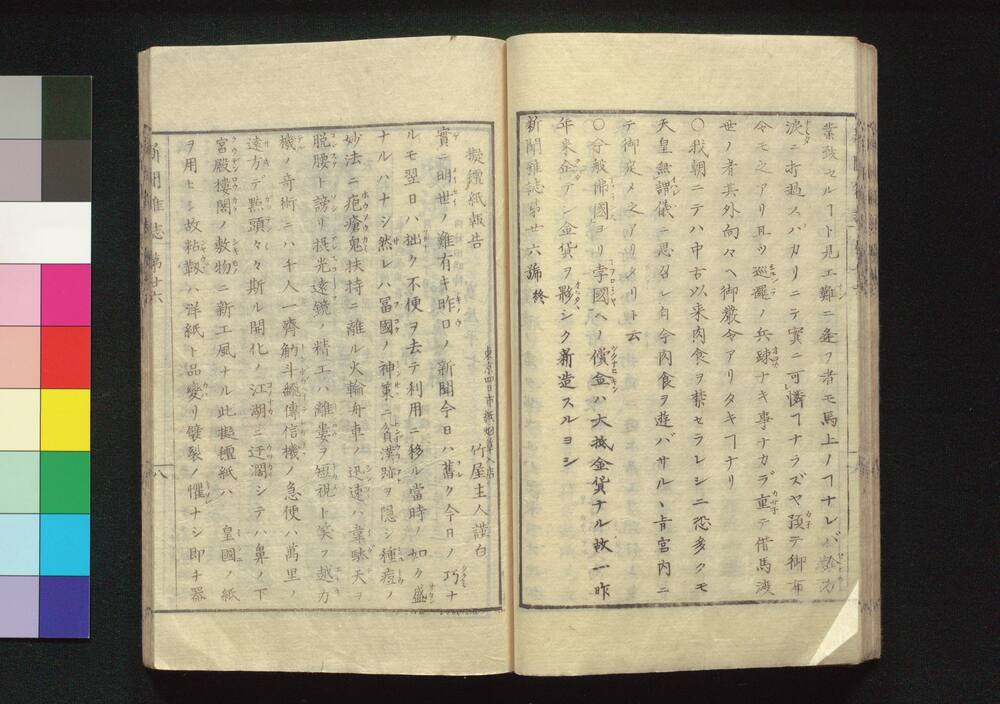 業致セルヿト見エ難ニ逢フ者モ馬上ノヿナレバ
涙ニ打過スバカリニテ實ニ可憐ヿナラズヤ預テ御布
令モ之アリ且ツ巡邏ノ兵疎ナキ事ナガラ重テ借馬渡
世ノ者其外向々ヘ御嚴令アリタキヿナリ
〇我朝ニテハ中古以来肉食ヲ禁セラレシニ恐多クモ
天皇無謂儀ニ思召シ自今肉食ヲ遊バサルヽ旨宮内ニ
テ御定メ之アリタリト云
〇今般佛國ヨリ孛國ヘノ償金ハ大抵金貨ナル故一昨
年来企テシ金貨ヲ夥シク新造スルヨシ
新聞雜誌第廿六編終
擬氊紙報告
東京四日市紙烟草入店
竹屋主人謹白
實ニ明世ノ難有キ昨日ノ新聞今日ハ舊ク今日ノ巧ナ
ルモ翌日ハ拙ク不便ヲ去テ利用ニ移ル當時ノ如ク盛
ナルハナシ然レハ富國ノ神策ニ負漢跡ヲ隱シ種痘ノ
妙法ニ疱瘡鬼扶持ニ離ル火輪舟車ノ迅速ハ韋駄天ヲ
脱腰ト謗リ撰光遠鏡ノ精工ハ離婁ヲ短視ト笑フ越力
機ノ奇術ニハ千人一齊觔斗繩傳信機ノ急便ハ萬里ノ
遠方デ點頭々々斯ル開化ノ江湖ニ迂濶シテハ鼻ノ下
宮殿樓閣ノ敷物ニ新工風ナル此擬氊紙ハ 皇國ノ紙
ヲ用ヒシ故粘靱ハ洋紙ト品變リ擘裂ノ懼ナシ即キ器
新聞雜誌 第廿六
八